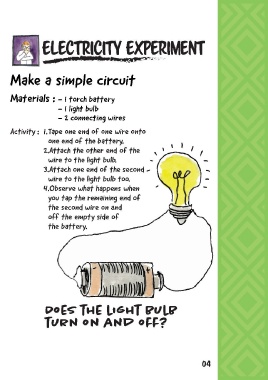 ELECTRICITY EXPERIMENT
Make a simple circuit
Materials : – 1 torch battery
– 1 light bulb
– 2 connecting wires
Activity : 1.Tape one end of one wire onto
one end of the battery.
2.Attach the other end of the
wire to the light bulb.
3.Attach one end of the second
wire to the light bulb too.
4.Observe what happens when
you tap the remaining end of
the second wire on and
off the empty side of
the battery.
DOES THE LIGHT BULB
TURN ON AND OFF?
04